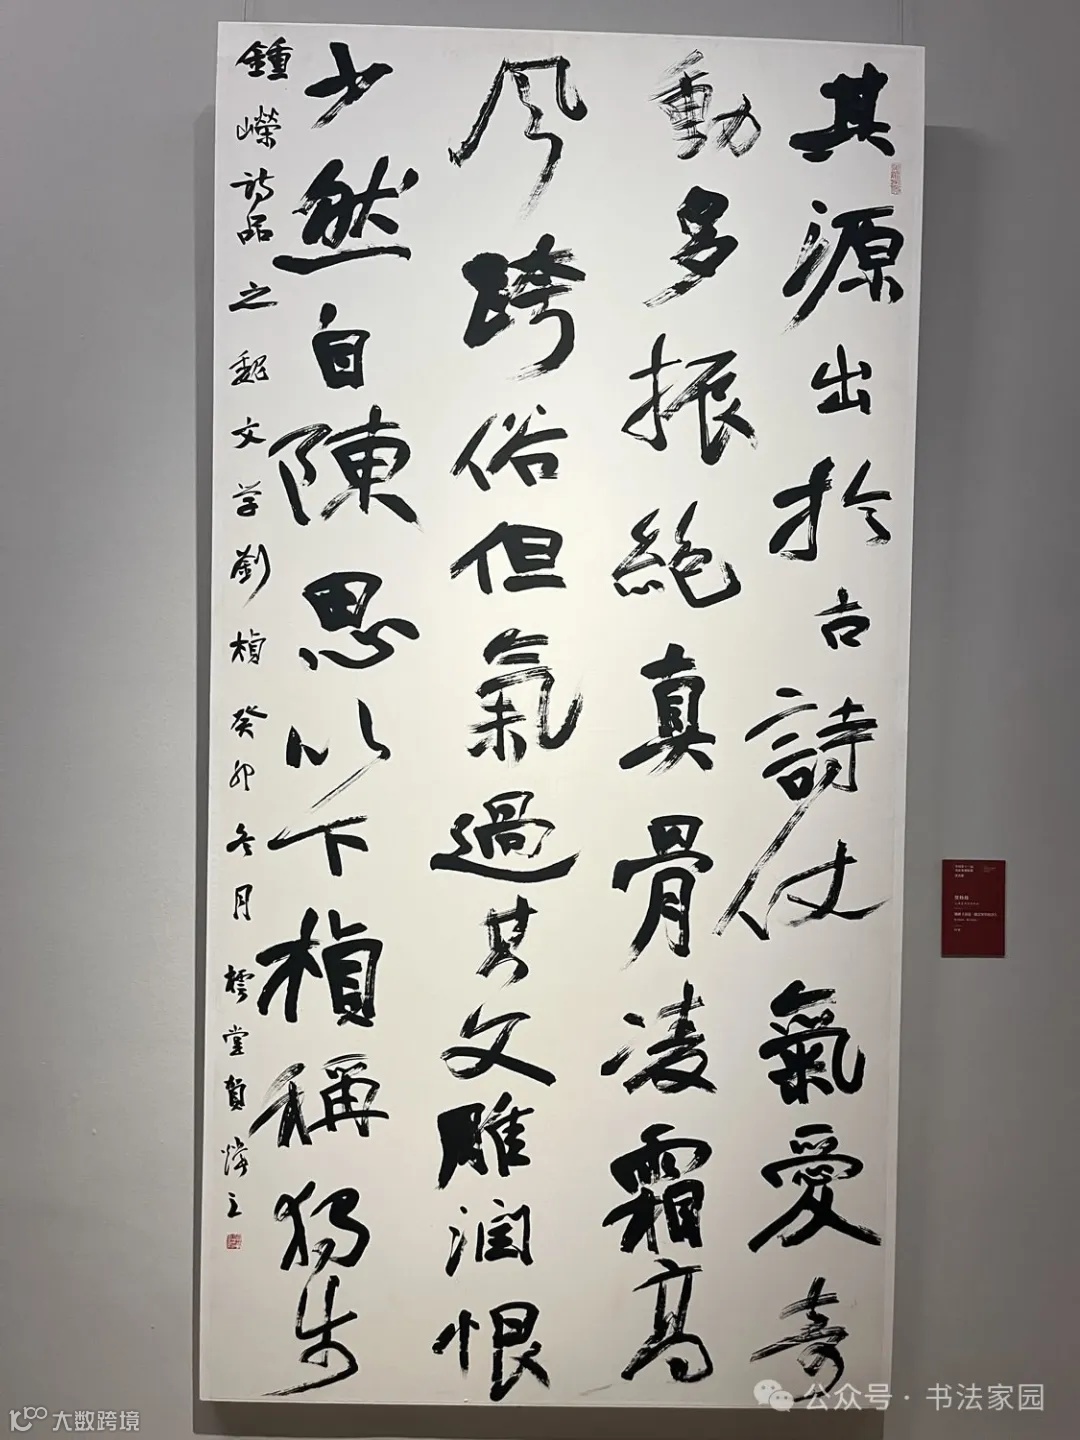 其源出於古詩仗氣愛奇
動多振絕真骨凌霜高
风跨俗但氣過其文雕润恨
少然自陳思以下楨稱独步
鍾嶸詩品之魏文学劉楨癸卯冬月堂賀
公众号 · 书法家园
大数跨境